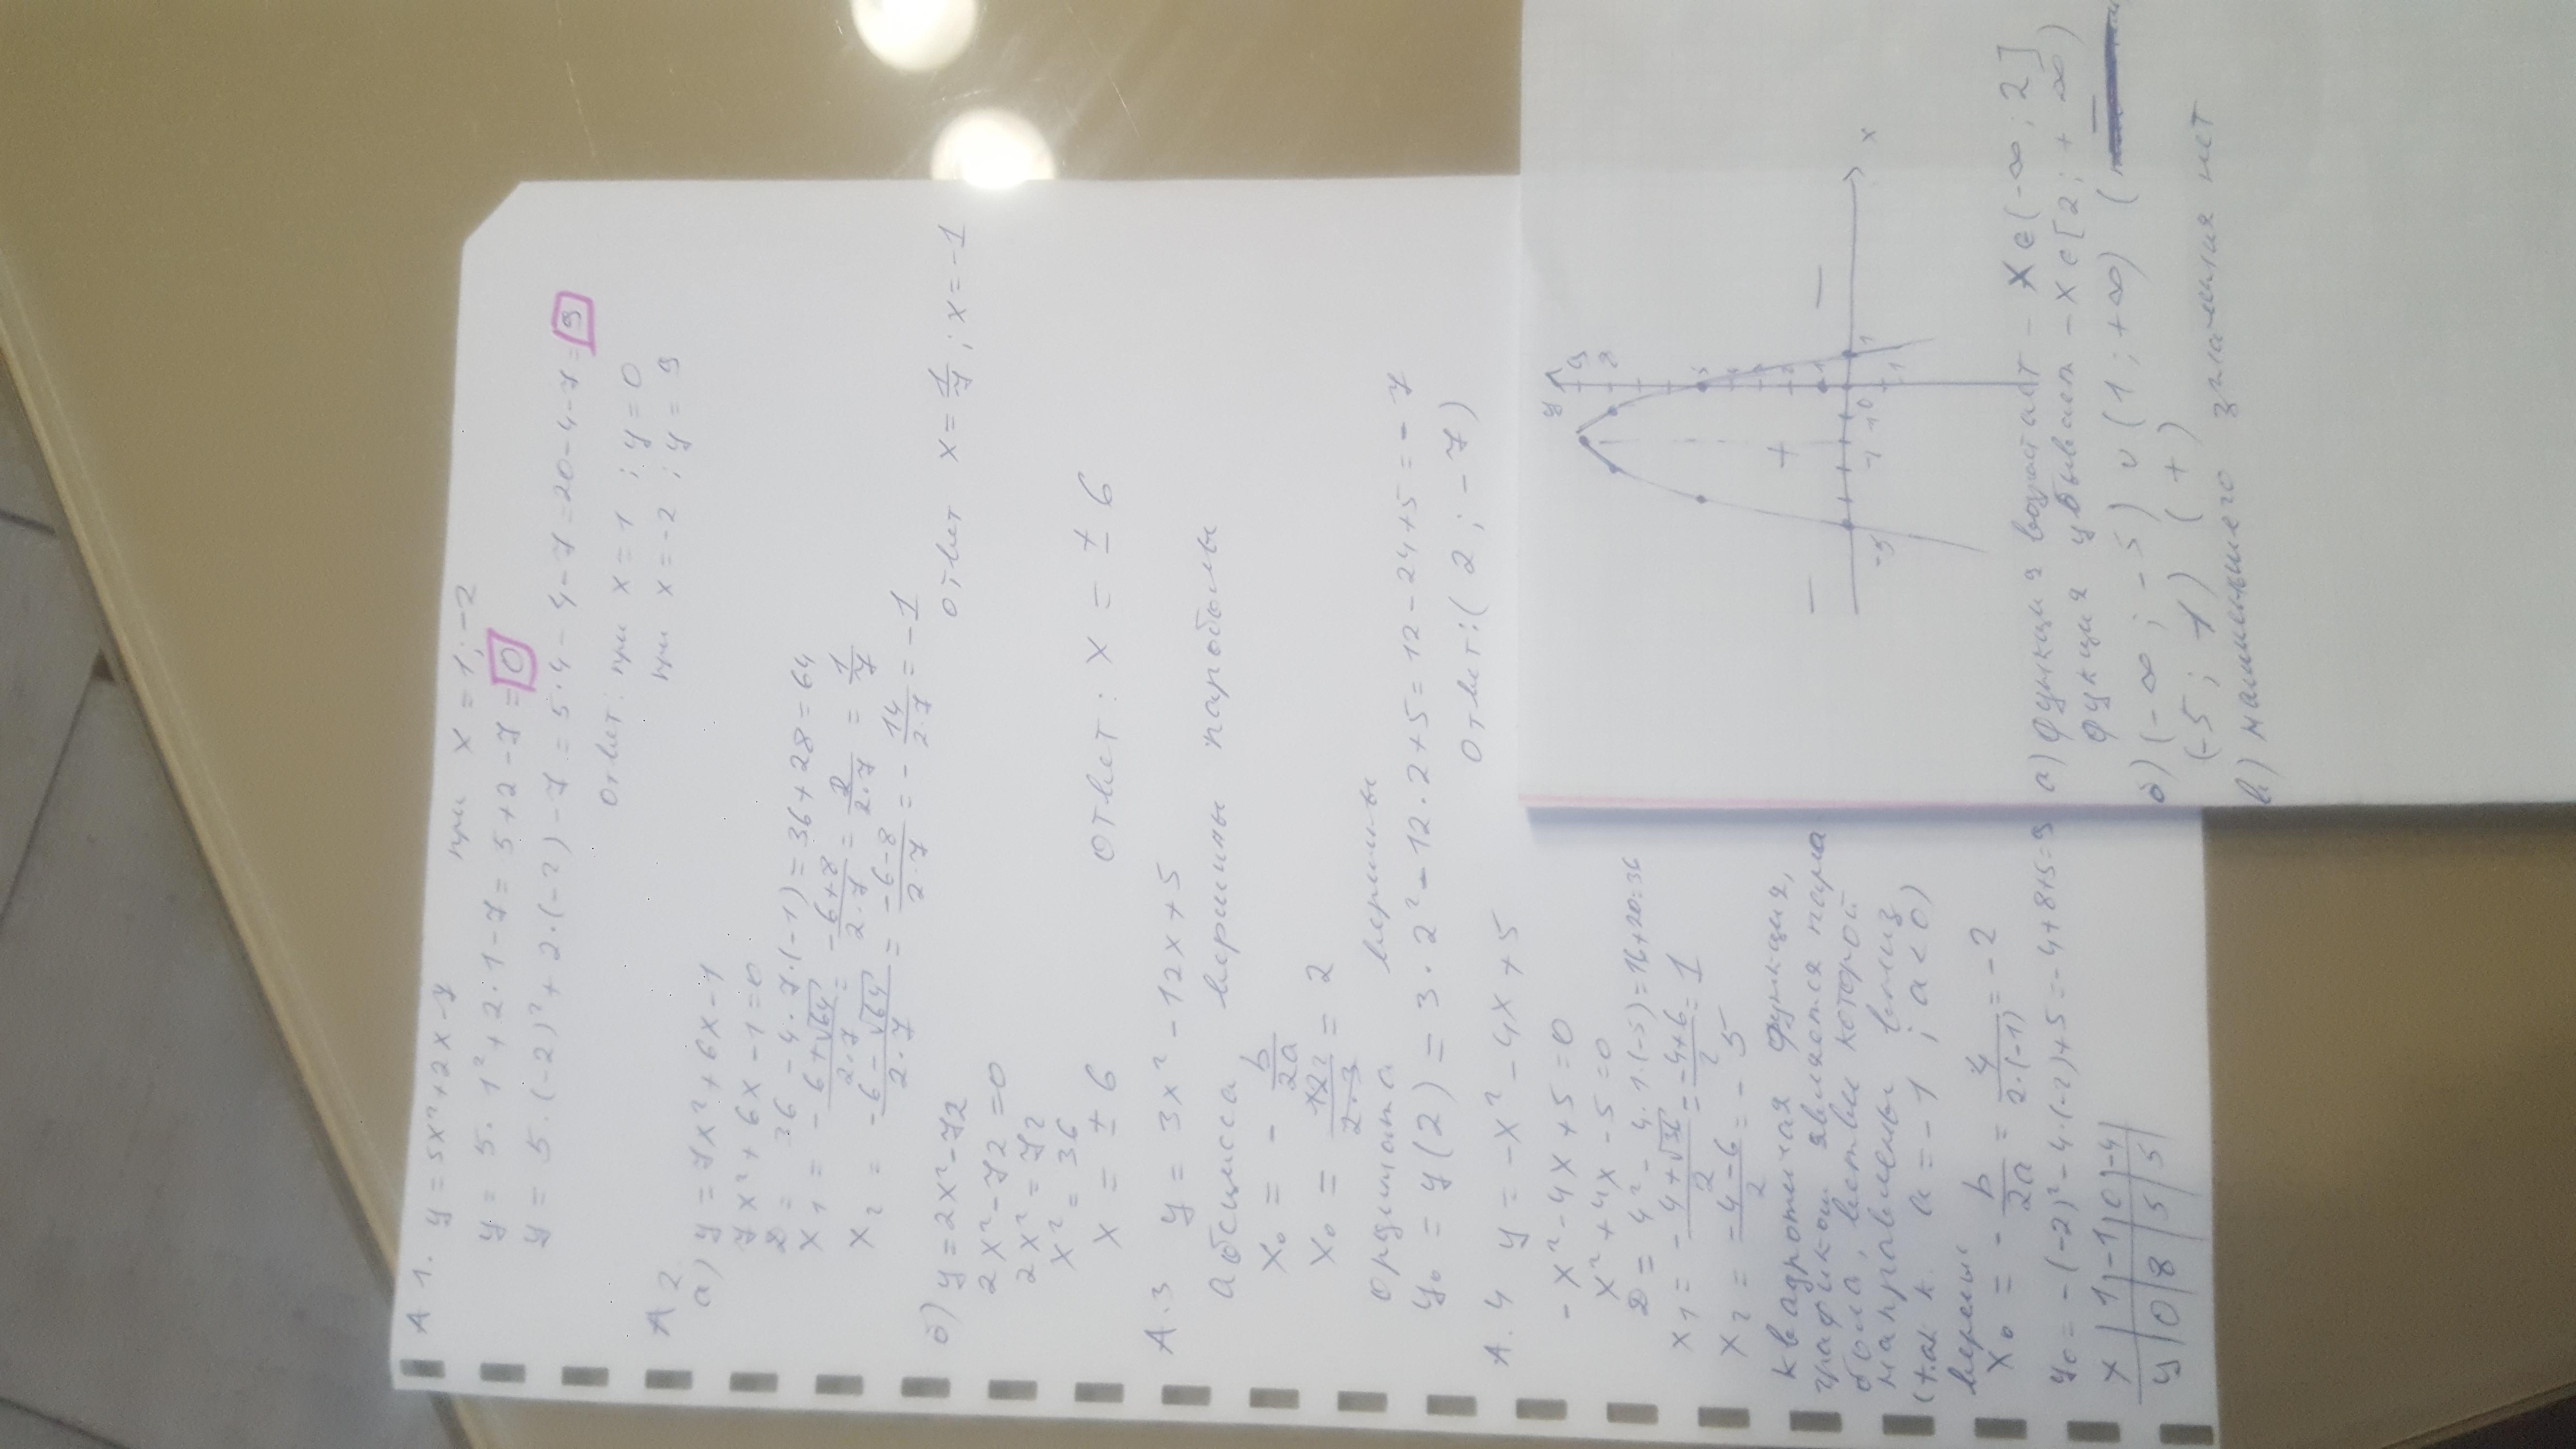 А 1. y = 5x² + 2x - 7 при x = 1; -2
y = 5 · 1² + 2 · 1 - 7 = 5 + 2 - 7 = 0
y = 5 · (-2)² + 2 · (-2) - 7 = 5 · 4 - 4 - 7 = 20 - 4 - 7 = 9
Ответ: при x = 1 ; y = 0
при x = -2 ; y = 9
А 2
а) y = 7x² + 6x - 1
7x² + 6x - 1 = 0
D = 36 - 4 · 7 · (-1) = 36 + 28 = 64
x₁ = (-6 + √64)/(2·7) = (-6+8)/(2·7) = 2/(2·7) = 1/7
x₂ = (-6 - √64)/(2·7) = (-6-8)/(2·7) = -14/(2·7) = -1
ответ x = 1/7 ; x = -1
б) y = 2x² - 72
2x² - 72 = 0
2x² = 72
x² = 36
x = ± 6
Ответ: x = ± 6
А.3 y = 3x² - 12x + 5
абсцисса вершины параболы
x₀ = - b/2a
x₀ = 12/(2·3) = 2
ордината вершины
y₀ = y(2) = 3 · 2² - 12 · 2 + 5 = 12 - 24 + 5 = -7
Ответ: ( 2 ; -7 )
А. 4 y = -x² - 4x + 5
-x² - 4x + 5 = 0
x² + 4x - 5 = 0
D = 4² - 4·1·(-5) = 16+20=36
x₁ = (-4+√36)/2 = (-4+6)/2 = 1
x₂ = (-4-6)/2 = -5
квадротичая функция,
графиком является пара
бола, ветви которой
направлены вниз
(так к. a = -1 ; a < 0)
x₀ = - b/2a = 4/(2·(-1)) = -2
y₀ = -(-2)² - 4·(-2) + 5 = -4+8+5=9
x | 1 | -1 | 0 | -4
y | 0 | 8 | 5 | 5
y
9
8
5
+
-5 -1 0 1 x
-1
а) функция возрастает - x ∈ (-∞ ; 2]
фукция убывает - x ∈ [2 ; +∞)
б) (-∞ ; -5) ∪ (1 ; +∞) ( -
(-5 ; 1) ( + )
в) наименьшего значения нет